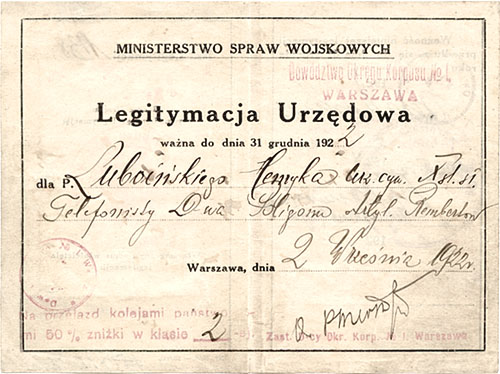 MINISTERSTWO SPRAW WOJSKOWYCH
Dowództwo Okręgu Korpusu № I,
WARSZAWA
Legitymacja Urzędowa
ważna do dnia 31 grudnia 1922
dla P. Luboińskiego Henryka Urz. cyw. X st. sł.
Telefonisty D-wa Poligonu Artyl. Rembertów
Warszawa, dnia 2 Września 1922 r.
Na przejazd kolejami państwo
mi 50% zniżki w klasie 2
Zast. D-cy Okr. Korp. № I. Warszawa